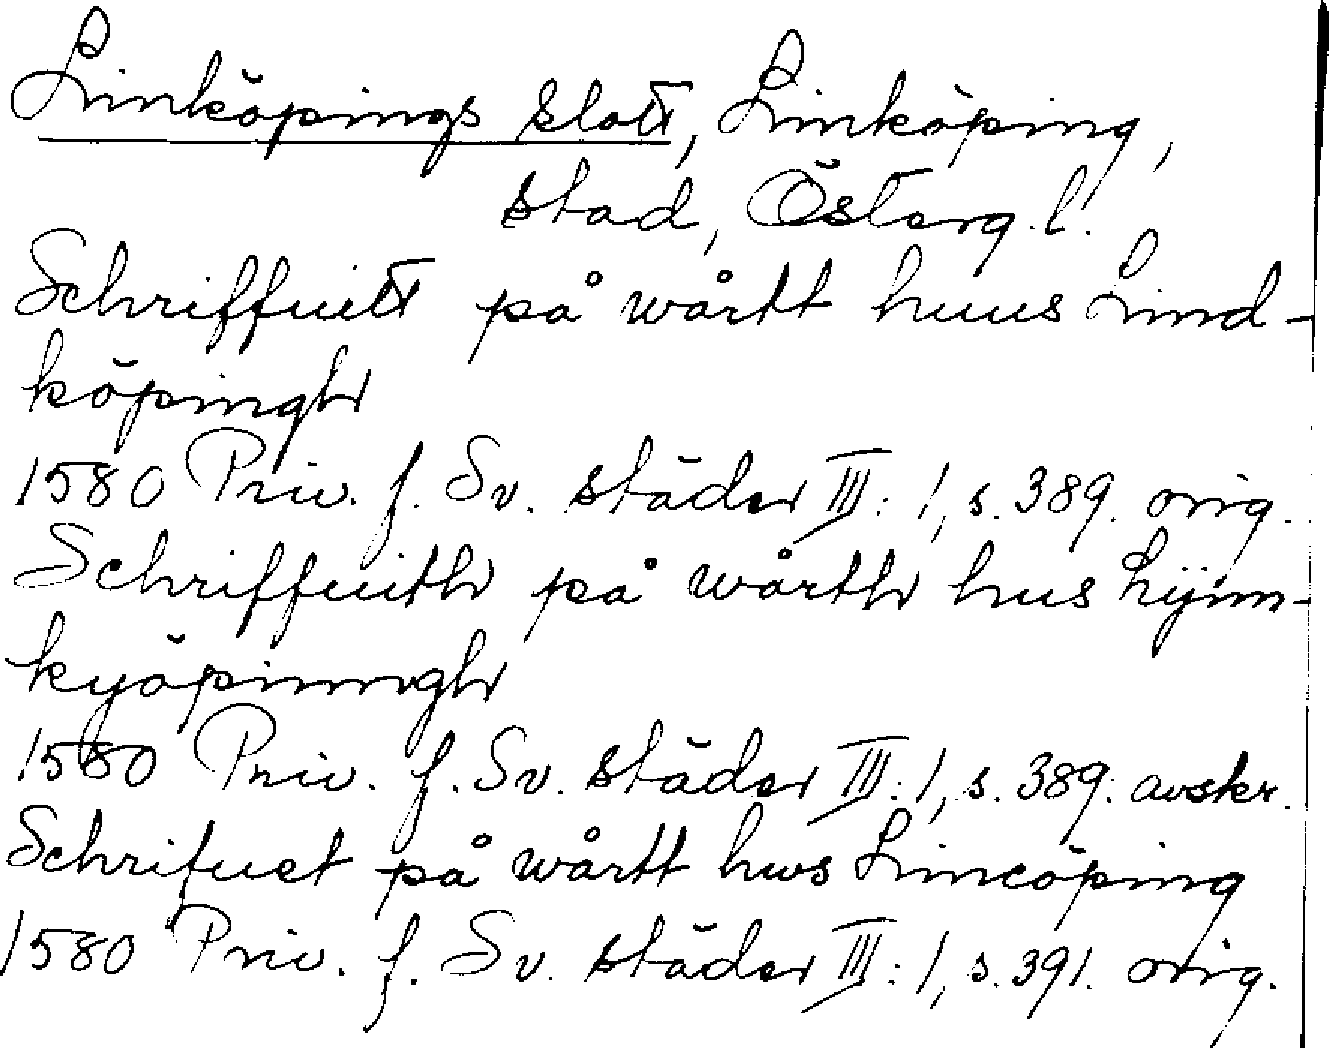 Linköpings slott, Linköping,
stad, Österg. l.
Schriffuitt på wårtt huus Lind-
köpingh
1580 Priv. f. Sv. städer III: 1, s. 389. orig.
Schriffuith på wårth hus Lijnn-
kyöpinngh
1580 Priv. f. Sv. städer III: 1, s. 389. avskr.
Schrifuet på wårtt hws Lincöping
1580 Priv. f. Sv. städer III: 1, s. 391. orig.